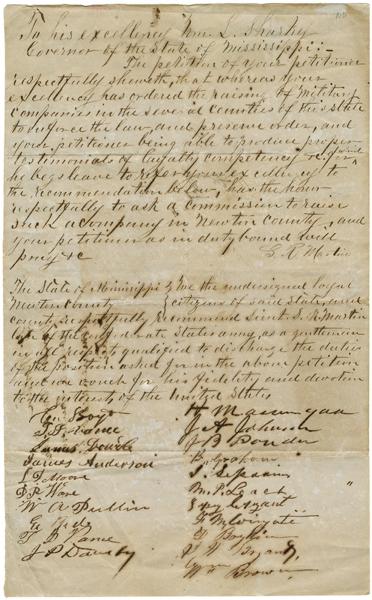 To his excellency Wm. L. Sharkey
Governor of the State of Mississippi:-
The petition of your petitioner
respectfully sheweth, that whereas your
excellency has ordered the raising of military
companies in the several counties of this state
to enforce the law and preserve order, and
your petitioner being able to produce proper
testimonials of loyalty competency &c for which
he begs leave to refer your excellency to
the recommendation below, has the honor
respectfully to ask a commission to raise
such a company in Newton County, and
your petitioner as in duty bound will
pray &c S. R. Martin
The State of Mississippi } We the undersigned loyal
Newton County } citizens of said state, and
county, respectfully recommend Lieut. S. R. Martin
late of the confederate States army, as a gentleman
in all respects qualified to discharge the duties
of the position asked for in the above petition
and we vouch for his fidelity and devotion
to the interests of the United States
H Massengale
T. F. Vance J A Johnson
James Doudle J B Ponder
James Anderson B Graham
L P Moore
D. R. Ware M. P. Leach
W A Pullin
F M Wingate
T B Vance
J P Dansby
W F Brown